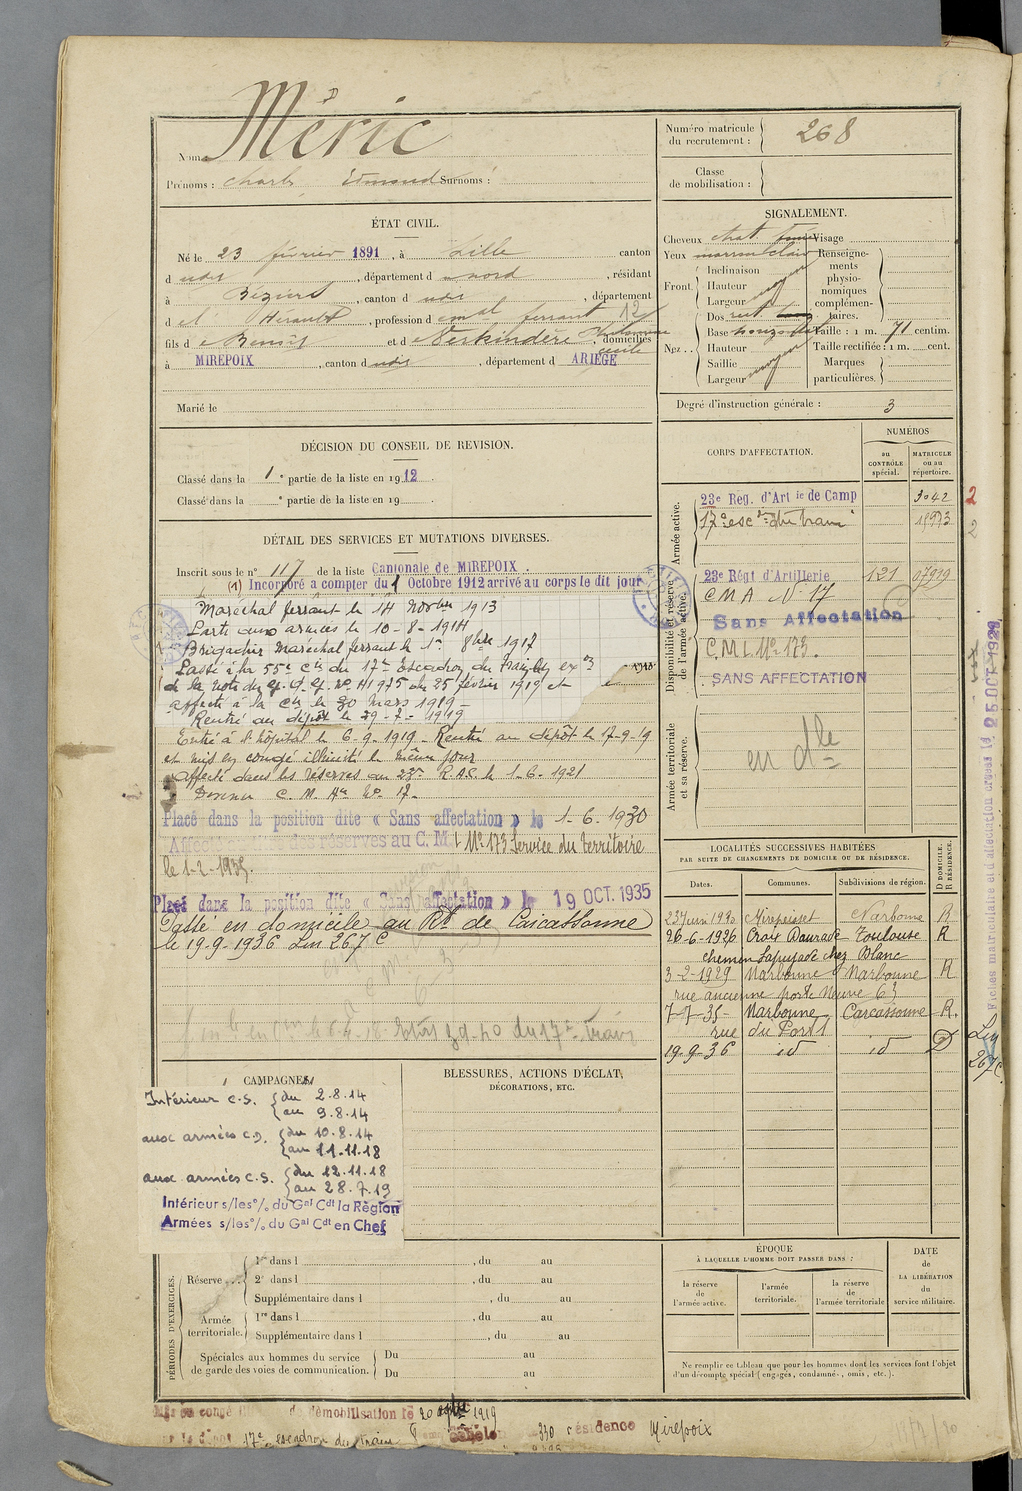 Nom Méric
Prénoms : Charles Edmond Surnoms :
ÉTAT CIVIL.
Né le 23 février 1891, à Lille canton
d udit, département d u nord, résidant
à Béziers, canton d udit, département
d et Hérault, profession d maréchal ferrant 12
fils d e Benoit et d e Verkindère domiciliés
à MIREPOIX, canton d udit, département d ARIEGE
Marié le
DÉCISION DU CONSEIL DE REVISION.
Classé dans la 1e partie de la liste en 1912.
Classé dans la e partie de la liste en 19
DÉTAIL DES SERVICES ET MUTATIONS DIVERSES.
Inscrit sous le no 117 de la liste Cantonale de MIREPOIX.
(1) Incorporé a compter du 1 Octobre 1912 arrivé au corps le dit jour
Maréchal ferrant le 14 Novbre 1913
Parti aux armées le 10-8-1914
Brigadier Maréchal ferrant le 1er 8bre 1917
Passé à la 55e Cie du 17e Escadron du Train
de la note du G.Q.G. No 41975 du 25 février 1919 et
affecté à la Cie le 30 mars 1919-
Rentré au dépôt le 29-7-1919
Entré à l'hôpital le 6-9-1919- Rentré au dépôt le 17-9-19
et mis en congé illimité le même jour
Affecté dans les réserves au 23e R.A.C. le 1-6-1921
C. M. An No 17-
Placé dans la position dite « Sans affectation » le 1-6-1930
Affecté dans les réserves au C. M. L No 173 Service du territoire
le 1-2-1935.
Placé dans la position dite « Sans affectation » le 19 OCT. 1935
Passé en domicile au Rt de Carcassonne
le 19-9-1936 Lin 267 C
CAMPAGNES
Intérieur C.S. { du 2.8.14
au 9.8.14
aux armées C.D. { du 10.8.14
au 11.11.18
aux armées C.S. { du 12.11.18
au 28.7.19
Intérieur s/les % du Gal Cdt la Région
Armées s/les % du Gal Cdt en Chef
BLESSURES, ACTIONS D'ÉCLAT,
DÉCORATIONS, ETC.
PÉRIODES D'EXERCICES.
Réserve ... { 1re dans l , du au
2e dans l , du au
Supplémentaire dans l , du au
Armée territoriale. { 1re dans l , du au
Supplémentaire dans l , du au
Spéciales aux hommes du service { Du au
de garde des voies de communication. Du au
de démobilisation le 20 1919
17e escadron du train résidence Mirepoix
Numéro matricule
du recrutement : } 268
Classe
de mobilisation : }
SIGNALEMENT.
Cheveux chat Visage
Yeux marron clair
Front. { Inclinaison
Hauteur moyen
Largeur
Renseigne-
ments
physio-
nomiques
complémen-
taires.
Nez . . { Dos rect
Base horizontal
Hauteur moyen
Saillie
Largeur
Taille : 1 m. 71 centim.
Taille rectifiée : 1 m. cent.
Marques
particulières.
Degré d'instruction générale : 3
CORPS D'AFFECTATION.
NUMÉROS
au
CONTRÔLE
spécial.
MATRICULE
ou au
répertoire.
Armée active.
23e Reg. d'Artie de Camp 3042 2
17e escon du train 18973 2
Disponibilité et réserve
de l'armée active.
23e Régt d'Artillerie 121 07919
C M A No 17
Sans Affectation
C.M.L No 173.
SANS AFFECTATION
Armée territoriale
et sa réserve.
en dle
LOCALITÉS SUCCESSIVES HABITÉES
PAR SUITE DE CHANGEMENTS DE DOMICILE OU DE RÉSIDENCE.
Dates. Communes. Subdivisions de région.
D DOMICILE.
R RÉSIDENCE.
23 Juin 1920 Mirepeisset Narbonne R
26-6-1926 Croix Daurade Toulouse R
chemin Lapujade chez Blanc
3-2-1929 Narbonne Narbonne R
rue ancienne porte Neuve 63
7-7-35- Narbonne Carcassonne R.
rue du Port 1
19-9-36 id id D
Lin
267 C.
Fiches matriculaire et d'affectation créées le 25 OCT. 1929
ÉPOQUE
À LAQUELLE L'HOMME DOIT PASSER DANS :
la réserve
de
l'armée active.
l'armée
territoriale.
la réserve
de
l'armée territoriale
DATE
de
LA LIBÉRATION
du
service militaire.
Ne remplir ce tableau que pour les hommes dont les services font l'objet
d'un décompte spécial (engagés, condamnés, omis, etc.).